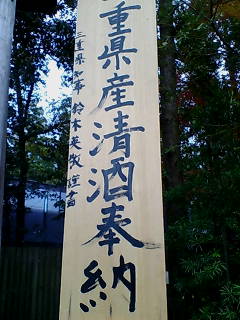 重県産清酒奉納
三重県知事 鈴木英敬 謹書